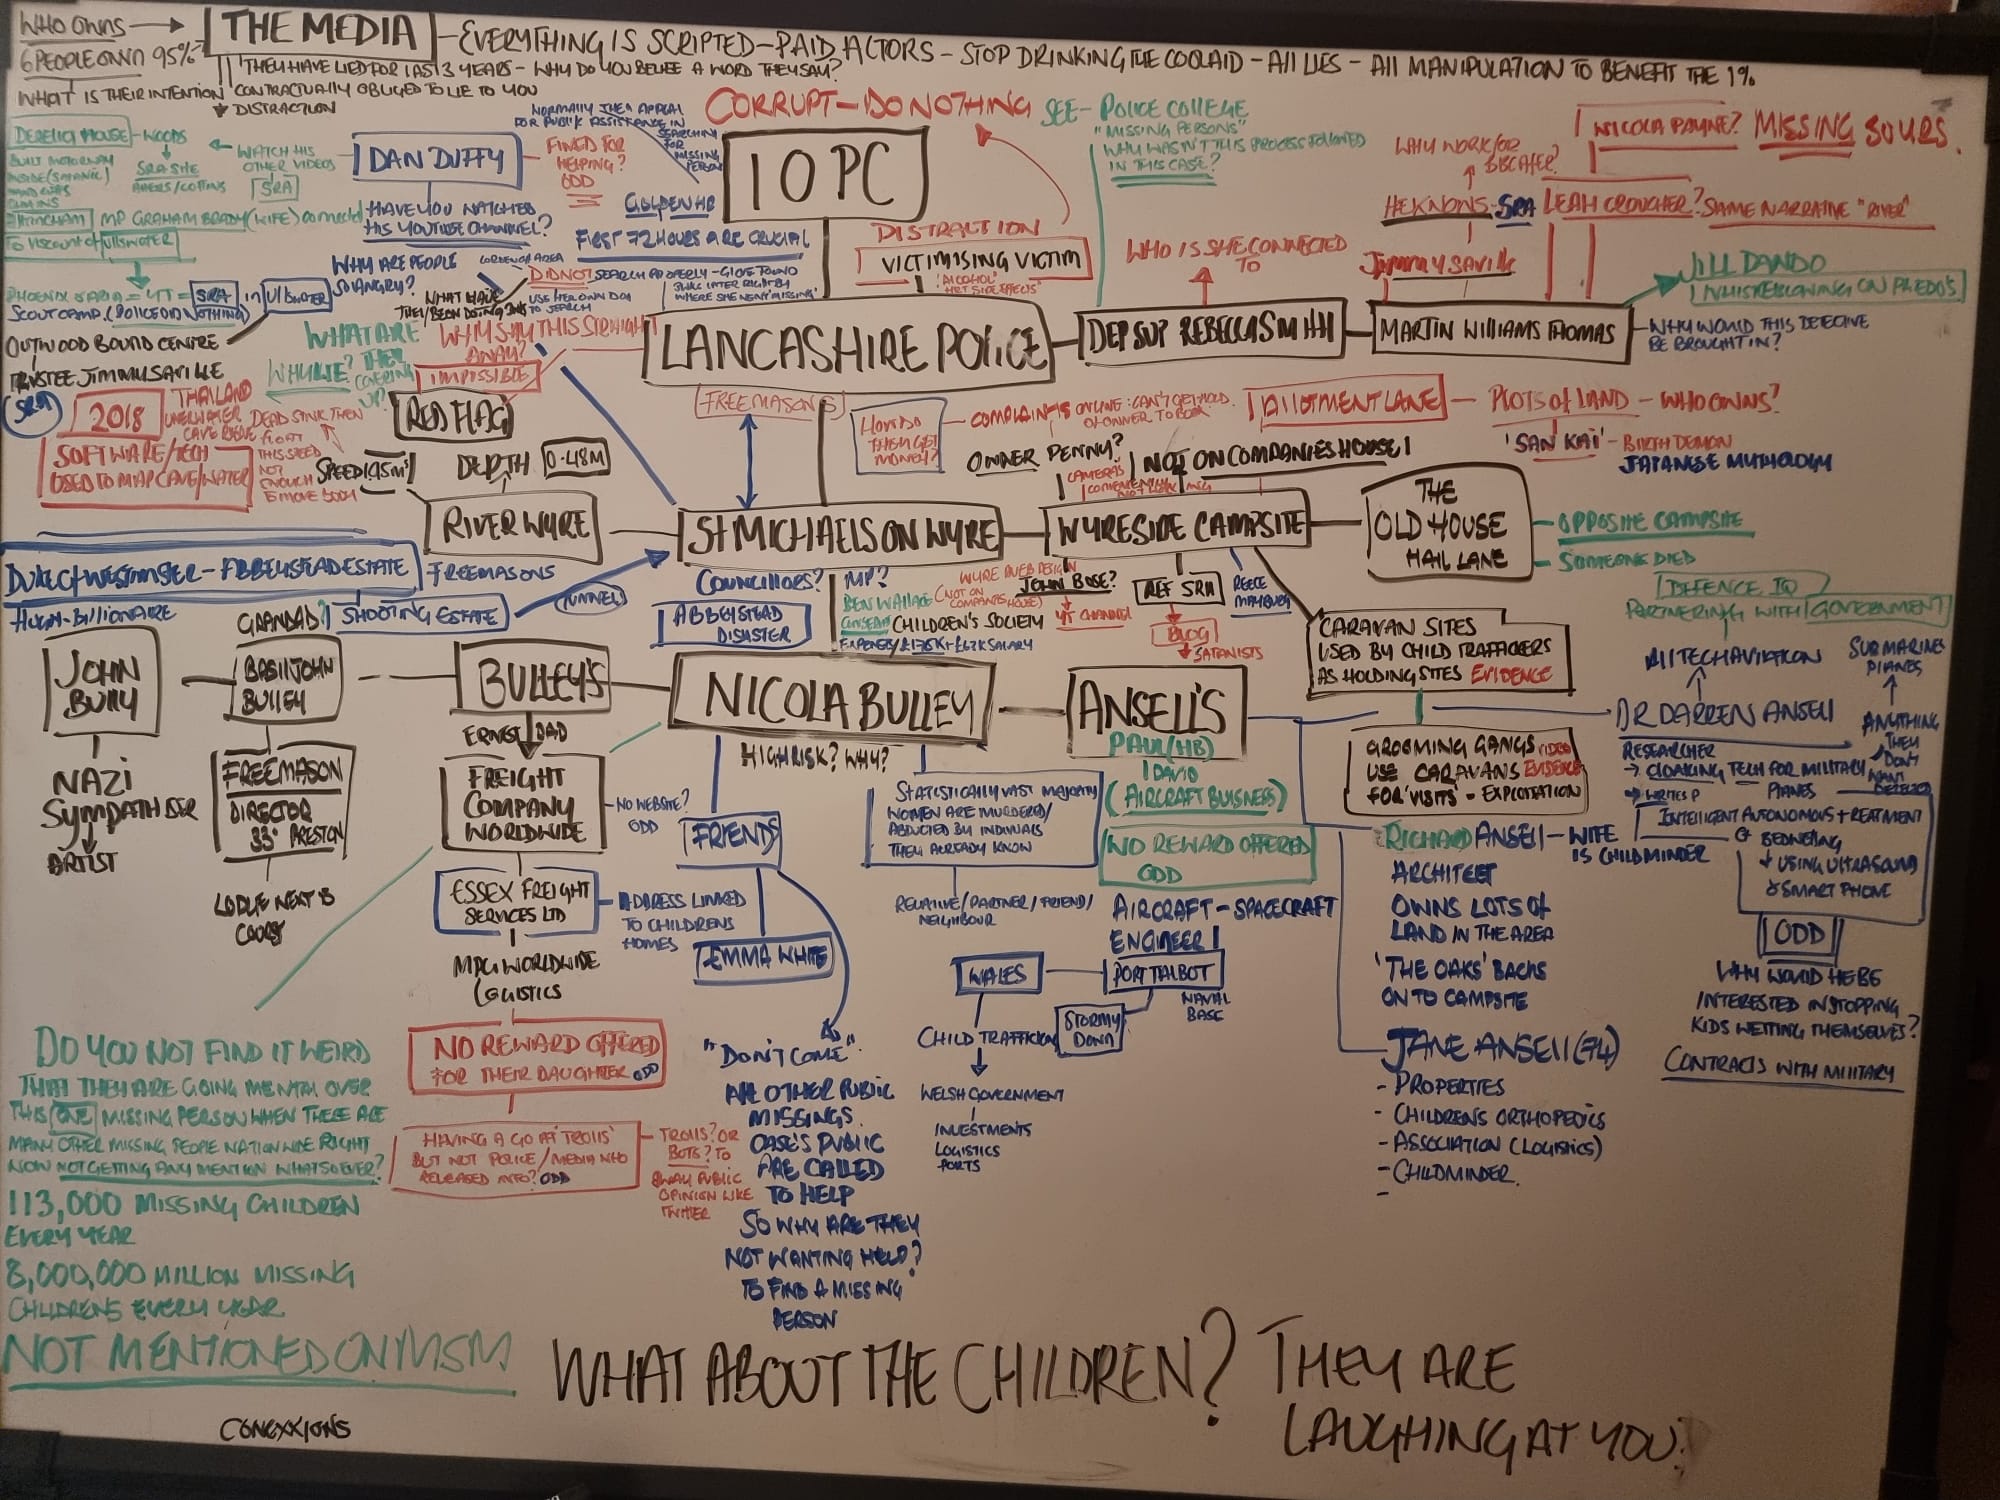 WHO OWNS
6 PEOPLE OWN 95%
THE MEDIA - EVERYTHING IS SCRIPTED - PAID ACTORS - STOP DRINKING THE COOLAID - All LIES - All MANIPULATION TO BENEFIT THE 1%
THEY HAVE LIED FOR LAST 3 YEARS - WHY DO YOU BELIEVE A WORD THEY SAY?
WHAT IS THEIR INTENTION
CONTRACTUALLY OBLIGED TO LIE TO YOU
DISTRACTION
DERELICT HOUSE - WOODS
SRA SITE
WATCH HIS
OTHER VIDEOS
SRA
DAN DUFFY
FINED FOR
HELPING?
ODD
HAVE YOU WATCHED
HIS YOUTUBE CHANNEL?
NORMALLY THEY APPEAL
FOR PUBLIC ASSISTANCE IN
SEARCHING
FOR
MISSING
PERSON
MP GRAHAM BRADY (WIFE) connected
To VISCOUNT of Ullswater
SCOUT CAMP. (POLICE DID NOTHING)
SRA in Ullswater
OUTWOOD BOUND CENTRE
TRUSTEE JIMMY SAVILLE
SRA
CORRUPT - DO NOTHING
IOPC
GOLDEN HR
FIRST 72 HOURS ARE CRUCIAL
WHY ARE PEOPLE
SO ANGRY?
DID NOT SEARCH PROPERLY - GLOVE FOUND
USE HER OWN DOG
TO SEARCH
WHERE SHE WENT 'MISSING'
DISTRACTION
VICTIMISING VICTIM
'ALCOHOL'
HRT SIDE EFFECTS'
SEE - POLICE COLLEGE
"MISSING PERSONS"
WHY WASN'T THIS PROCESS FOLLOWED
IN THIS CASE?
WHO IS SHE CONNECTED
TO
NICOLA PAYNE? MISSING 30 YRS.
HE KNOWS - SRA LEAH CROUCHER? SAME NARRATIVE "RIVER"
Jimmy Saville
JILL DANDO
WHISTLEBLOWING ON PAEDO'S
LANCASHIRE POLICE
DEP SUP REBECCA SMITH
MARTIN WILLIAMS THOMAS
WHY WOULD THIS DETECTIVE
BE BROUGHT IN?
FREEMASONS
WHAT ARE
THEY
COVERING
UP?
WHY LIE?
WHY SAY THIS STRAIGHT
AWAY?
IMPOSSIBLE
RED FLAG
2018
THAILAND
UNDERWATER
CAVE RESCUE
SOFTWARE/TECH
USED TO MAP CAVE/WATER
DEAD SINK THEN
FLOAT
THIS SPEED
NOT
ENOUGH
TO MOVE BODY
DEPTH 0.48M
RIVER WYRE
HOW DO
THEY GET
MONEY?
COMPLAINTS ONLINE: CAN'T GET HOLD
OF OWNER TO BOOK
ALLOTMENT LANE - PLOTS of LAND - WHO OWNS?
'SAN KAI' - BIRTH DEMON
JAPANESE MYTHOLOGY
OWNER PENNY?
NOT ON COMPANIES HOUSE!
CAMERAS
CONVENIENTLY
NOT WORKING
ST MICHAELS ON WYRE
WYRESIDE CAMPSITE
THE
OLD HOUSE
HALL LANE
OPPOSITE CAMPSITE
SOMEONE DIED
DUKE of WESTMINSTER - ABBEYSTEAD ESTATE
FREEMASONS
HUGH - BILLIONAIRE
SHOOTING ESTATE
TUNNELS
COUNCILLORS?
ABBEYSTEAD
DISASTER
MP?
BEN WALLACE
CHILDREN'S SOCIETY
(NOT ON
COMPANIES HOUSE)
JOHN BOSE?
YT CHANNEL
REF SRA
BLOG
SATANISTS
REECE
CARAVAN SITES
USED BY CHILD TRAFFICKERS
AS HOLDING SITES EVIDENCE
DEFENCE IQ
PARTNERING WITH GOVERNMENT
JOHN
BULLY
NAZI
SYMPATHISER
ARTIST
GRANDAD?
BASIL JOHN
BULLEY
FREEMASON
DIRECTOR
33° PRESTON
LODGE NEXT TO
COURT
BULLEY'S
ERNEST DAD
FREIGHT
COMPANY
WORLDWIDE
NO WEBSITE?
ODD
ESSEX FREIGHT
SERVICES LTD
ADDRESS LINKED
TO CHILDRENS
HOMES
WORLDWIDE
LOGISTICS
NO REWARD OFFERED
FOR THEIR DAUGHTER ODD
HAVING A GO AT 'TROLLS'
BUT NOT POLICE/MEDIA WHO
RELEASED INFO? ODD
TROLLS? OR
BOTS? TO
SWAY PUBLIC
OPINION LIKE
TWITTER
NICOLA BULLEY
HIGH RISK? WHY?
FRIENDS
EMMA WHITE
"DON'T COME"
ALL OTHER PUBLIC
MISSINGS
CASE'S PUBLIC
ARE CALLED
TO HELP
SO WHY ARE THEY
NOT WANTING HELP?
TO FIND A MISSING
PERSON
STATISTICALLY VAST MAJORITY
WOMEN ARE MURDERED/
ABDUCTED BY INDIVIUALS
THEY ALREADY KNOW
RELATIVE/PARTNER/FRIEND/
NEIGHBOUR
ANSELL'S
PAUL (HB)
DAVID
(AIRCRAFT BUISNESS)
NO REWARD OFFERED
ODD
AIRCRAFT - SPACECRAFT
ENGINEER!
WALES
PORT TALBOT
NAVAL
BASE
STORMY
DOWN
CHILD TRAFFICKING
WELSH GOVERNMENT
INVESTMENTS
LOGISTICS
PORTS
GROOMING GANGS VIDEO
USE CARAVANS EVIDENCE
FOR 'VISITS' - EXPLOITATION
AIITECH AVIATION
SUBMARINES
PLANES
ANYTHING
THEY
DON'T
WANT
DETECTED
DR DARREN ANSELL
RESEARCHER
CLOAKING TECH FOR MILITARY
PLANES
INTELLIGENT AUTONOMOUS TREATMENT
of BEDWETTING
USING ULTRASOUND
& SMART PHONE
ODD
WHY WOULD HE BE
INTERESTED IN STOPPING
KIDS WETTING THEMSELVES?
CONTRACTS WITH MILITARY
RICHARD ANSELL - WIFE
IS CHILDMINDER
ARCHITECT
OWNS LOTS OF
LAND IN THE AREA
'THE OAKS' BACKS
ON TO CAMPSITE
JANE ANSELL (74)
- PROPERTIES
- CHILDREN'S ORTHOPEDICS
- ASSOCIATION (LOGISTICS)
- CHILDMINDER.
-
DO YOU NOT FIND IT WEIRD
THAT THEY ARE GOING MENTAL OVER
THIS ONE MISSING PERSON WHEN THERE ARE
MANY OTHER MISSING PEOPLE NATIONWIDE RIGHT
NOW NOT GETTING ANY MENTION WHATSOEVER?
113,000 MISSING CHILDREN
EVERY YEAR
8,000,000 MILLION MISSING
CHILDRENS EVERY YEAR
NOT MENTIONED ON MSM
CONEXXIONS
WHAT ABOUT THE CHILDREN? THEY ARE
LAUGHING AT YOU!